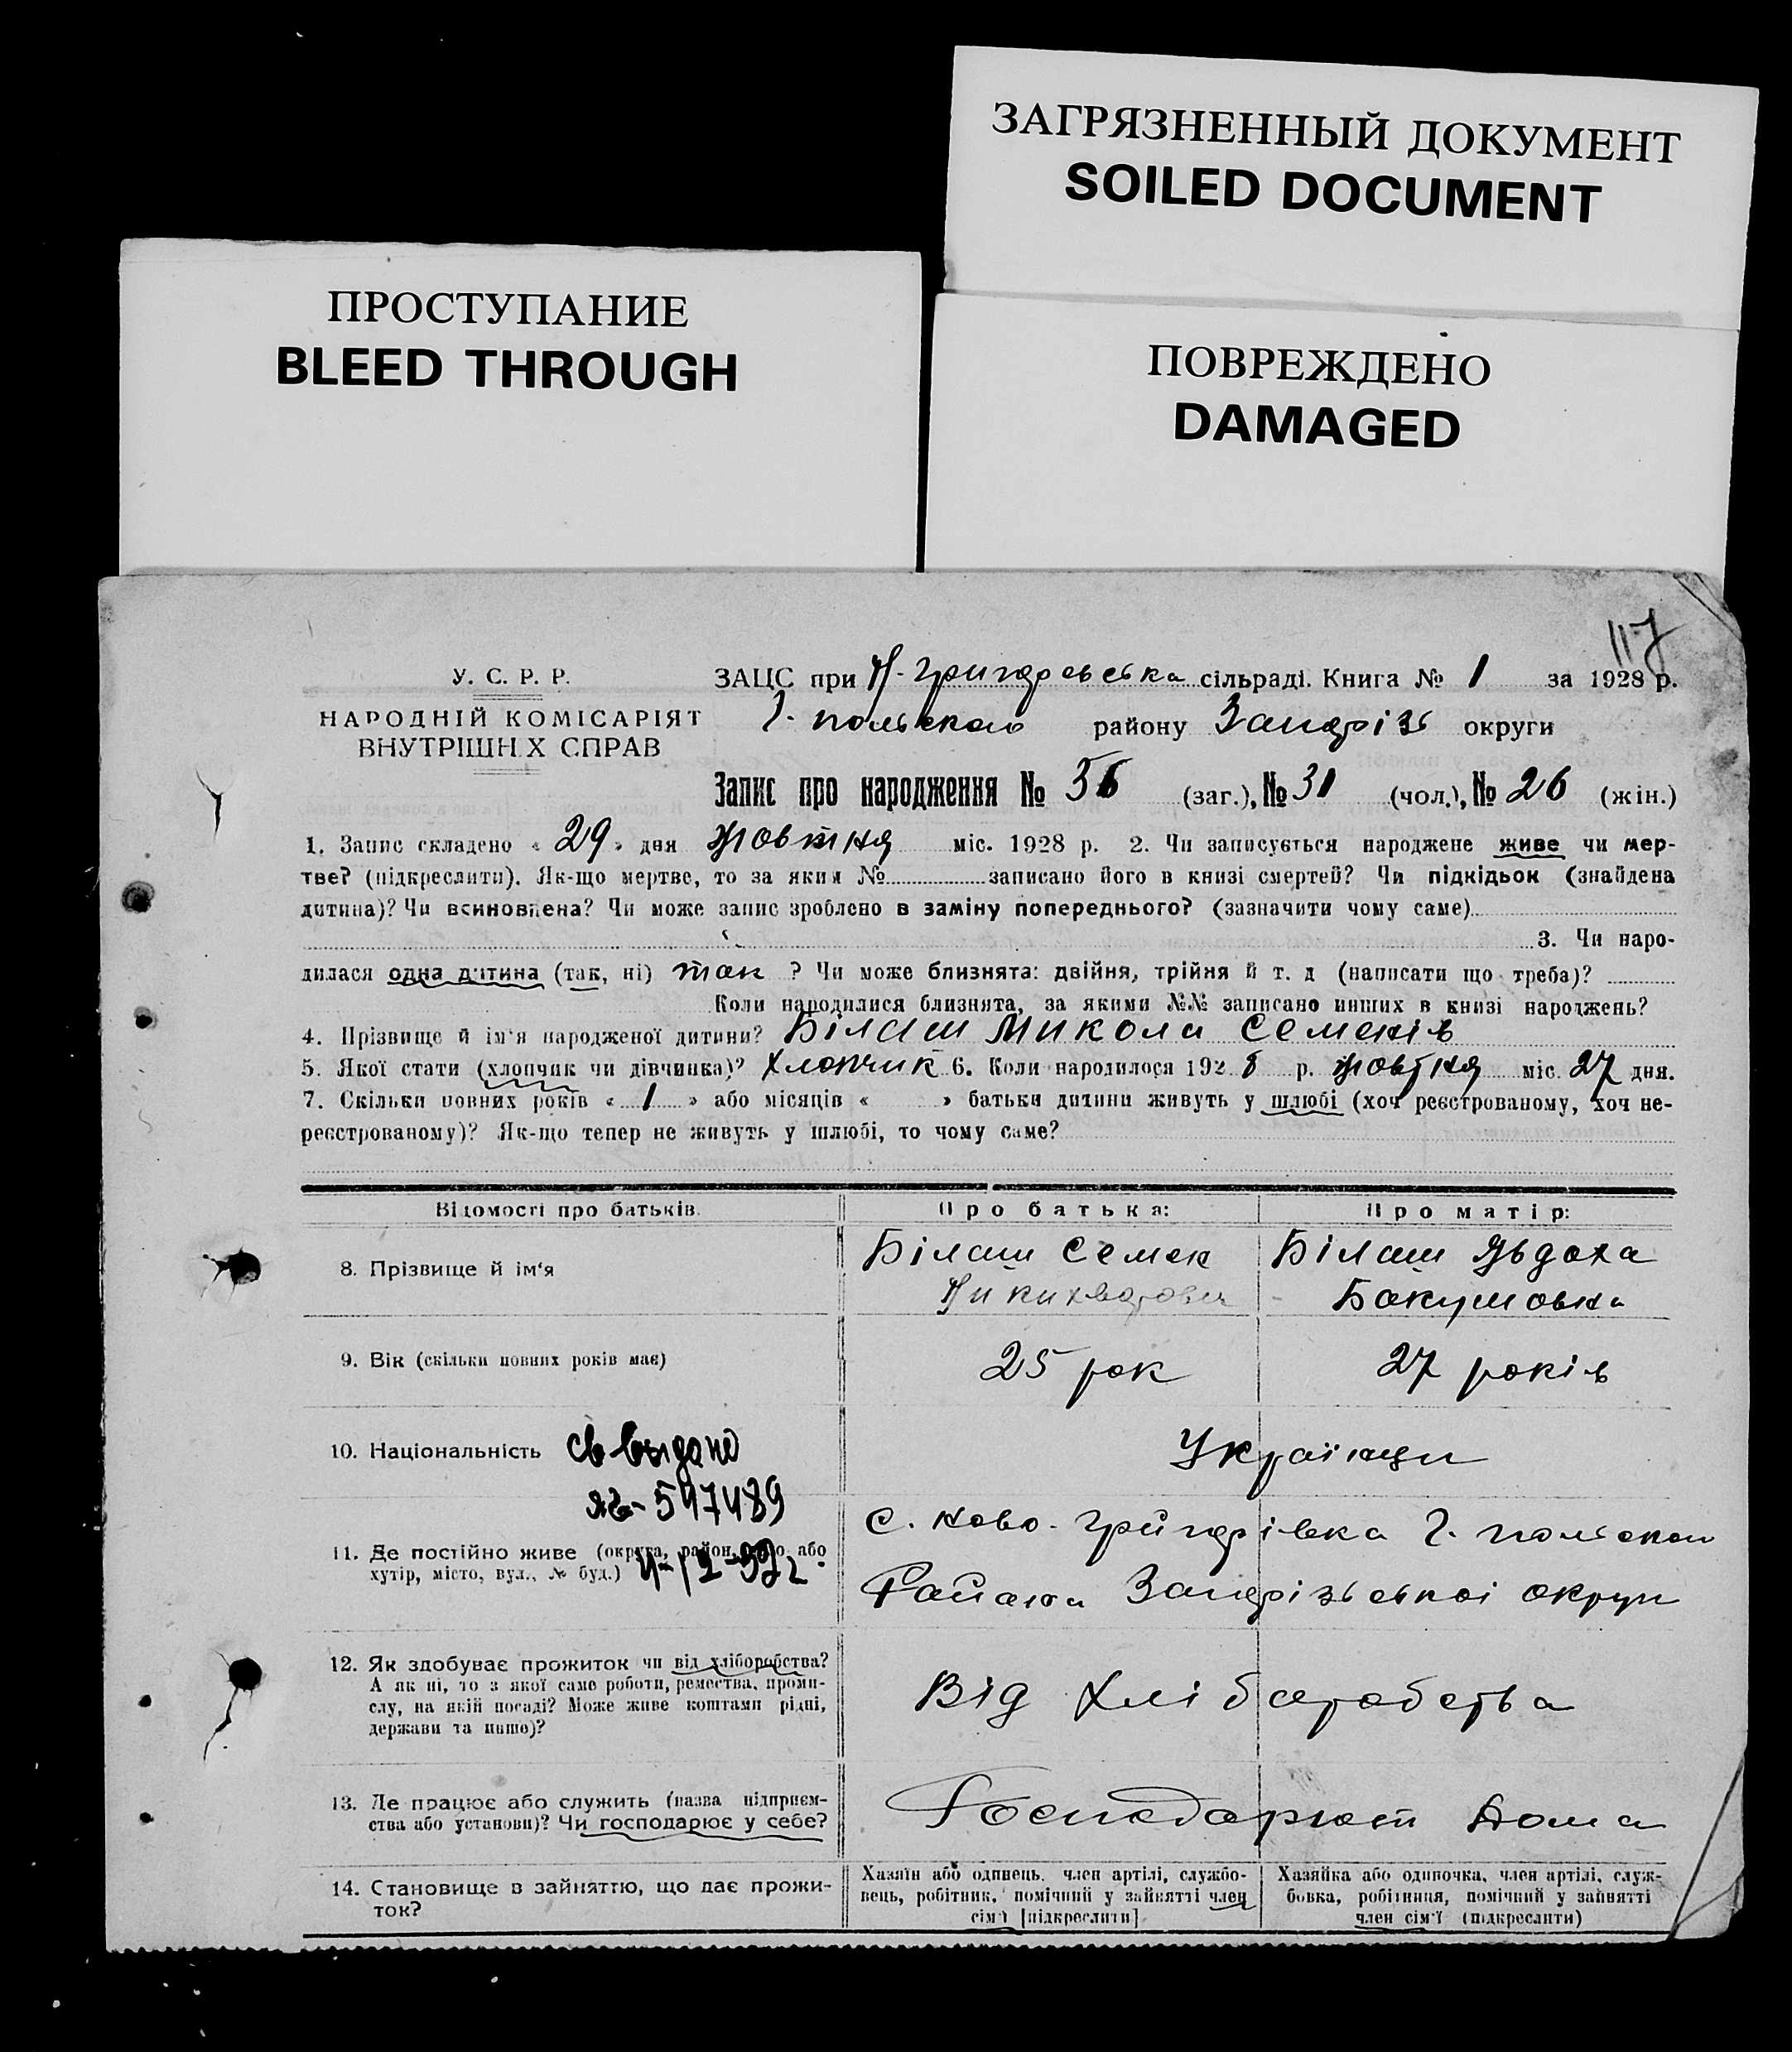 ЗАГРЯЗНЕННЫЙ ДОКУМЕНТ
SOILED DOCUMENT
ПРОСТУПАНИЕ
BLEED THROUGH
ПОВРЕЖДЕНО
DAMAGED
117
У. С. Р. Р.
НАРОДНІЙ КОМІСАРІЯТ
ВНУТРІШНІХ СПРАВ
ЗАЦС при Н-Григорєвська сільраді. Книга № 1 за 1928 р.
Г. польского району Запоріз округи
Запис про народження № 56 (заг.), № 31 (чол.), № 26 (жін.)
1. Запис складено « 29 » дня жовтня міс. 1928 р. 2. Чи записується народжене живе чи мер-
тве? (підкреслити). Як-що мертве, то за яким № записано його в книзі смертей? Чи підкідьок (знайдена
дитина)? Чи всиновлена? Чи може запис зроблено в заміну попереднього? (зазначити чому саме)
3. Чи наро-
дилася одна дитина (так, ні) так ? Чи може близнята: двійня, трійня й т. д (написати що треба)?
Коли народилися близнята, за якими №№ записано инших в книзі народжень?
4. Прізвище й ім'я народженої дитини? Білаш Микола Семенів
5. Якої стати (хлопчик чи дівчинка)? хлопчик 6. Коли народилося 192 8 р. жовтня міс. 27 дня.
7. Скільки повних років « 1 » або місяців « » батьки дитини живуть у шлюбі (хоч реєстрованому, хоч не-
реєстрованому)? Як-що тепер не живуть у шлюбі, то чому саме?
Відомості про батьків
Про батька:
Про матір:
8. Прізвище й ім'я
Білаш Семен
Білаш Явдоха
9. Вік (скільки повних років має)
25 рок
27 років
10. Національність
Українци
св выдано
597489
4-12-52г.
11. Де постійно живе (округа, район, село або
хутір, місто, вул., № буд.)
С. Ново-Григорівка Г. польског
Района Запорізьської округи
12. Як здобуває прожиток чи від хліборобства?
А як ні, то з якої саме роботи, ремества, проми-
слу, на якій посаді? Може живе коштами рідні,
держави та инше)?
Від хліборобства
13. Де працює або служить (назва підприєм-
ства або установи)? Чи господарює у себе?
Господарюют дома
14. Становище в зайняттю, що дає прожи-
ток?
Хазяїн або одинець, член артілі, службо-
вець, робітник, помічний у зайнятті член
сім'ї [підкреслити]
Хазяйка або одиночка, член артілі, служ-
бовка, робітниця, помічний у зайнятті
член сім'ї (підкреслити)